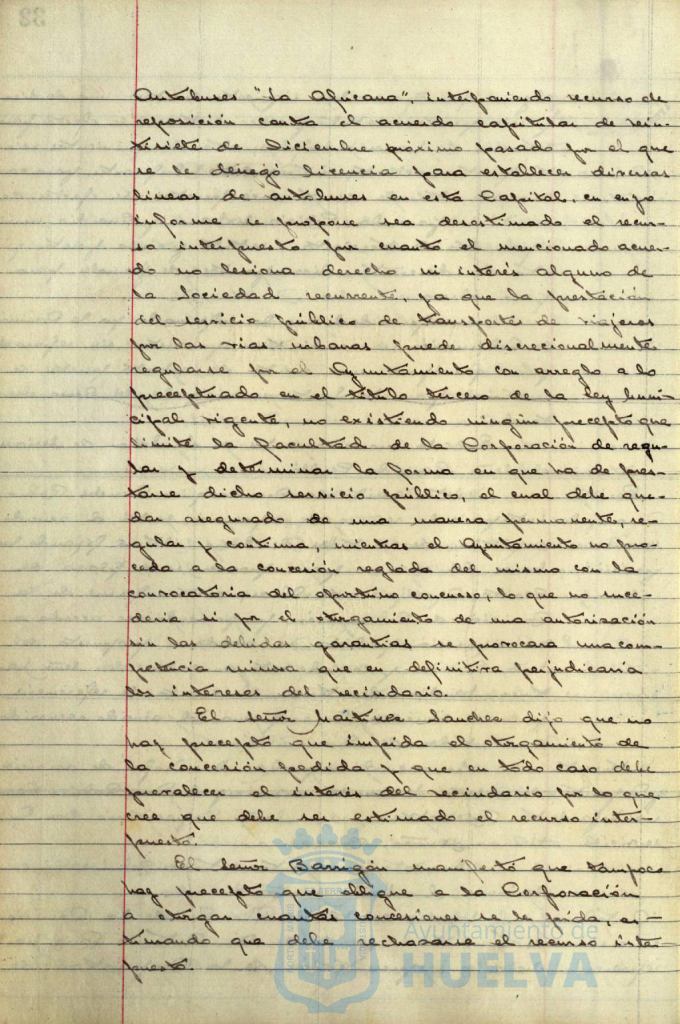 Autobuses "La Africana", interponiendo recurso de
reposición contra el acuerdo capitular de vein-
tisiete de Diciembre próximo pasado por el que
se le denegó licencia para establecer diversas
líneas de autobuses en esta Capital, en cuyo
informe se propone sea desestimado el recur-
so interpuesto por cuanto el mencionado acuer-
do no lesiona derecho ni interés alguno de
la Sociedad recurrente, ya que la prestación
del servicio público de transportes de viajeros
por las vías urbanas puede discrecionalmente
regularse por el Ayuntamiento con arreglo a lo
preceptuado en el título tercero de la Ley Muni-
cipal vigente, no existiendo ningún precepto que
limite la facultad de la Corporación de regu-
lar y determinar la forma en que ha de pres-
tarse dicho servicio público, el cual debe que-
dar asegurado de una manera permanente, re-
gular y continua, mientras el Ayuntamiento no pro-
ceda a la concesión reglada del mismo con la
convocatoria del oportuno concurso, lo que no suce-
dería si por el otorgamiento de una autorización
sin las debidas garantías se provocara una com-
petencia ruinosa que en definitiva perjudicaría
los intereses del vecindario.
El señor Martínez Sánchez dijo que no
hay precepto que impida el otorgamiento de
la concesión pedida y que en todo caso debe
prevalecer el interés del vecindario por lo que
cree que debe ser estimado el recurso inter-
puesto.
El señor Barrigón manifestó que tampoco
hay precepto que obligue a la Corporación
a otorgar cuantas concesiones se le pida, es-
timando que debe rechazarse el recurso inter-
puesto.
Ayuntamiento de
HUELVA